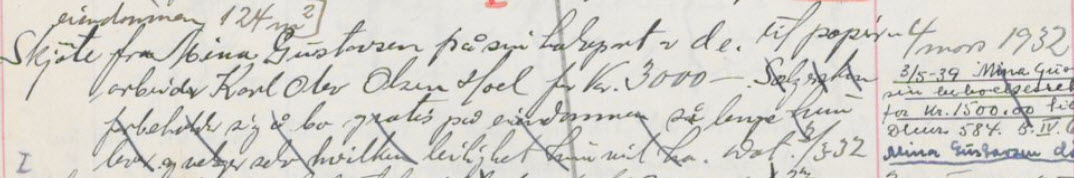 eiendommen 124 m²]
Skjöte fra Mina Gustavsen på sin halvpart av d e. til papir- 4 mars 1932
arbeider Karl Olav Olsen Hoel for Kr. 3000 — Selgersken
forbeholder sig å bo gratis på eiendommen så lenge hun
lever og velger selv hvilken leilighet hun vil ha. Dat. 3/3-32
I
3/5-39 Mina Gus
sin beboelsesret
for Kr. 1500.00
584. B. IV.
Mina Gustavsen